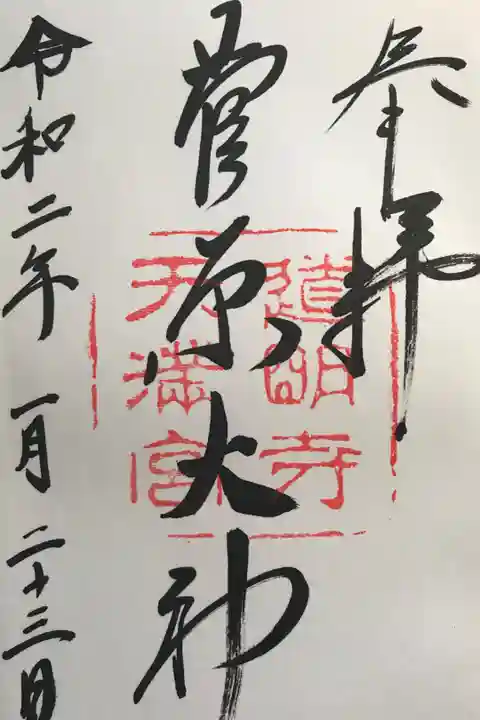 奉拝
道明寺
天満宮
菅原大神
令和二年一月二十三日